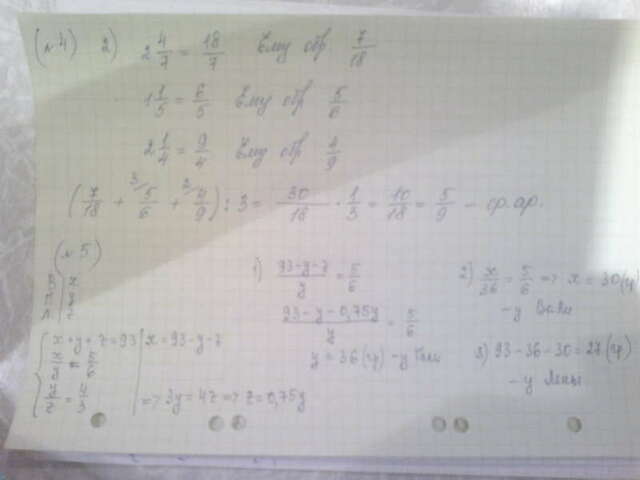 (№4) 2) 2 4/7 = 18/7 Ему обр 7/18
1 1/5 = 6/5 Ему обр 5/6
2 1/4 = 9/4 Ему обр 4/9
(7/18 + 5/6 + 4/9) : 3 = 30/18 · 1/3 = 10/18 = 5/9 – ср. ар.
(№5)
x + y + z = 93 | x = 93 - y - z
x/y = 5/6
y/z = 4/3 => 3y = 4z => z = 0,75y
1) (93-y-z)/y = 5/6
(93 - y - 0,75y)/y = 5/6
y = 36 (ч) - у Гали
2) x/36 = 5/6 => x = 30 (ч)
- у Вали
3) 93 - 36 - 30 = 27 (ч)
- у Лены